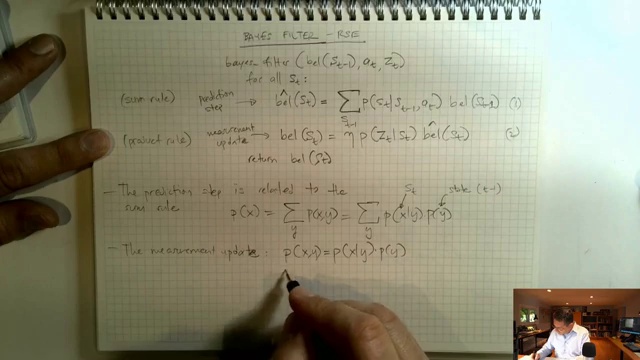 BAYES FILTER - RSE
bayes filter (bel(St-1), at, Zt)
for all St:
(sum rule) prediction step → bel̂(St) = ∑St-1 p(St|St-1, at) bel(St-1) (1)
(product rule) measurement update → bel(St) = η p(Zt|St) bel̂(St) (2)
return bel(St)
- The prediction step is related to the St state (t-1)
sum rule p(x) = ∑y p(x,y) = ∑y p(x|y) p(y)
- The measurement update: p(x,y) = p(x|y)·p(y)